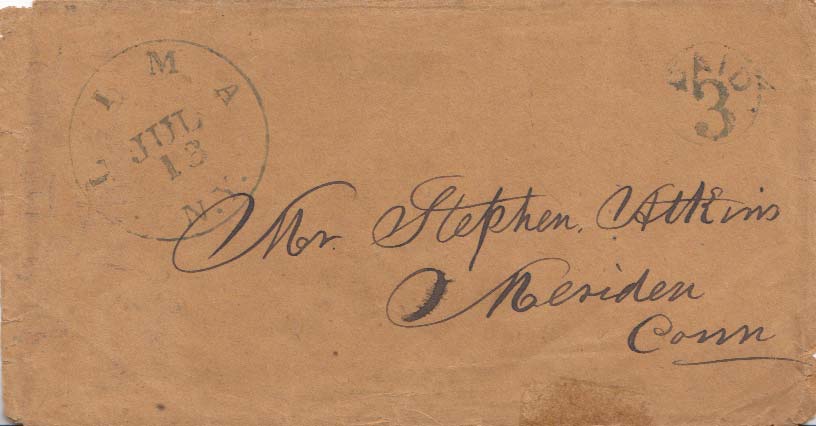 LIMA
JUL
13
N.Y.
PAID
3
Mr. Stephen. Atkins
Meriden
Conn